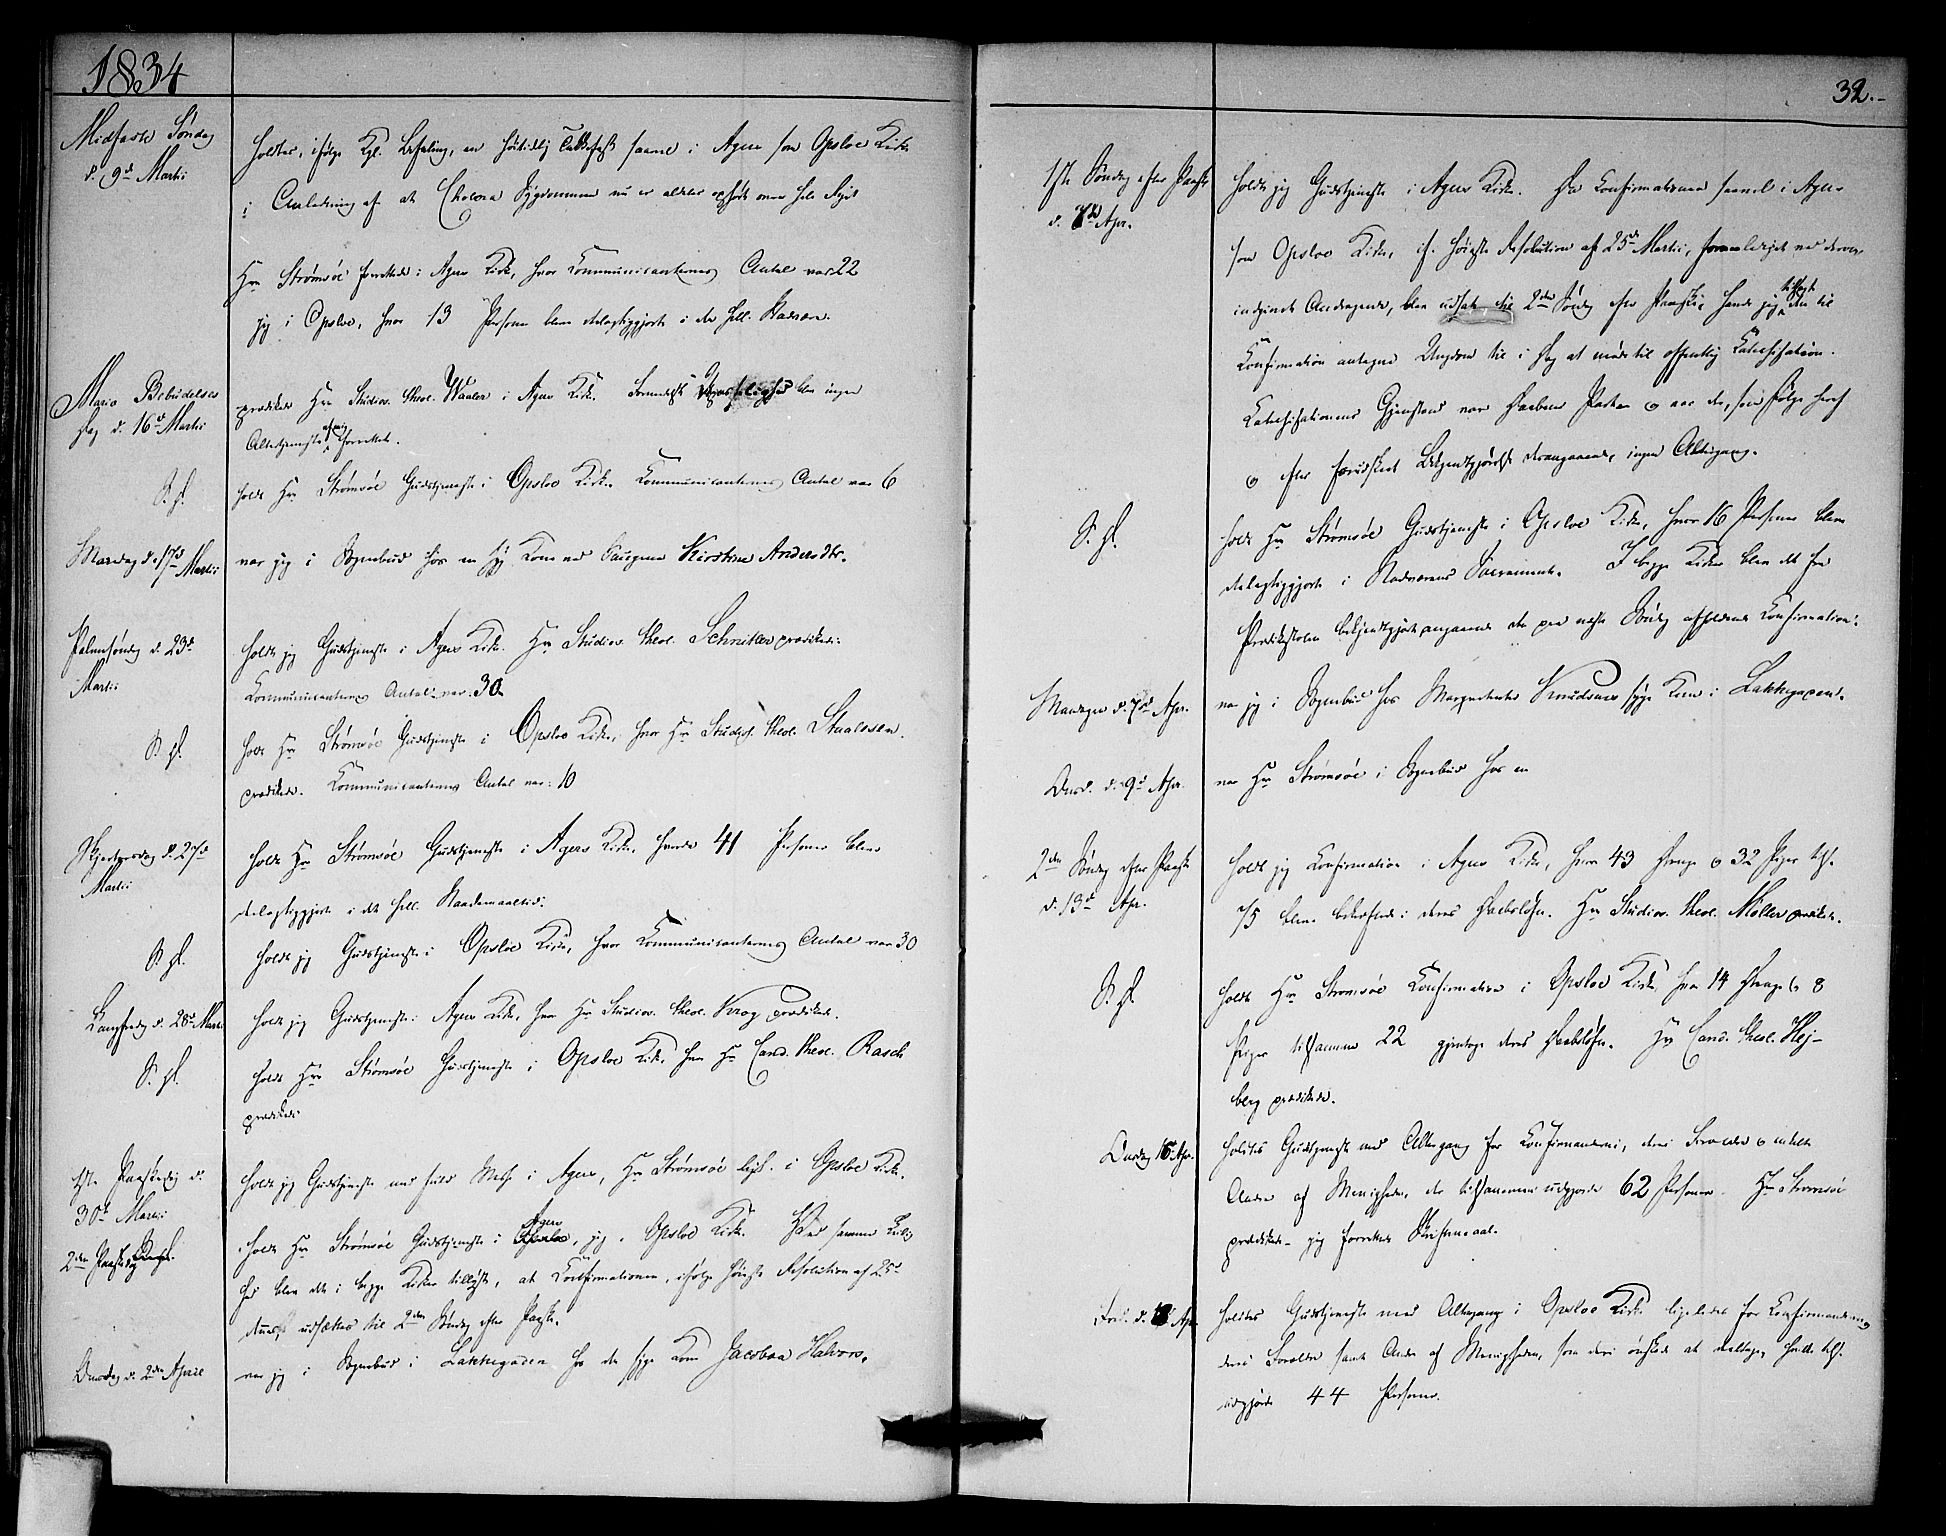 1834
Midfaste Søndag
d. 9de Martii
holdtes, ifølge Kgl. Befaling, en høitidelig Takkefest saavel i Agers som Opsloe Kirke
i Anledning af at Cholera Sygdommen nu er aldeles ophørt over hele Riget
Hr Strømsöe forrettede i Agers Kirke, hvor Communicanternes Antal var 22
jeg i Opsloe, hvor 13 Personer bleve delagtiggjorte i den hell. Nadvere.
Maria Bebudelses
Dag d. 16de Martii
prædikede Hr Studios. theol. Waaler i Agers Kirke. Formedelst blev ingen
Altertjeneste af mig forrettet.
S. D.
holdt Hr Strømsöe Gudstjeneste i Opsloe Kirke. Communicanternes Antal var 6
Mandag d. 17de Martii
var jeg i Sognebud hos en syg Kone ved Navn Kirstine Andersdtr.
Palmesöndag d. 23de
Martii
holdt jeg Gudstjeneste i Agers Kirke. Hr Studios. theol. Schnitler prædikede.
Communicanternes Antal var 30
S. D.
holdt Hr Strømsöe Gudstjeneste i Opsloe Kirke, hvor Hr Studios. theol. Staalesen
prædikede. Communicanternes Antal var: 10
Skjærtorsdag d. 27de
Martii
holdt Hr Strømsöe Gudstjeneste i Agers Kirke, hvor 41 Personer bleve
delagtiggjorte i det hell. Naademaaltid.
S. D.
holdt jeg Gudstjeneste i Opsloe Kirke, hvor Communicanternes Antal var 30
Langfredag d. 28de Martii
holdt jeg Gudstjeneste i Agers Kirke, hvor Hr Studios. theol. Krog prædikede.
S. D.
holdt Hr Strømsöe Gudstjeneste i Opsloe Kirke, hvor Hr Cand. theol. Rasch
prædikede.
1ste Paaskedag d.
30te Martii
holdt jeg Gudstjeneste med fuld Messe i Agers, Hr Strømsöe i Opsloe Kirke.
2den Paaskedag
holdt Hr Strømsöe Gudstjeneste i Agers, jeg i Opsloe Kirke. Ved samme Leilig-
hed blev det i begge Kirker tillyst, at Confirmationen, ifølge høieste Resolution af 25de
udsættes til 2den Søndag efter Paaske.
Onsdag d. 2den Aprile
var jeg i Sognebud i Lakkegaden hos den syge Kone Jacobea Halvors.
32.
1ste Søndag efter Paaske
d. Apr.
holdt jeg Gudstjeneste i Agers Kirke. Da Confirmationen saavel i Agers
som Opsloe Kirke, if. høieste Resolution af 25de Martii, foranlediget ved derom
indgivet Andragende, blev udsat til 2den Søndag efter Paaske, havde jeg tilsagt den til
Confirmation antagne Ungdom til i Dag at møde til offentlig Catechisation.
Catechisationens Gjenstand var Daabens Pagt og der, som Følge heraf
og efter forudskeet Bekjentgjørelse derangaaende, ingen Altergang.
S. D.
holdt Hr Strømsöe Gudstjeneste i Opsloe Kirke, hvor 16 Personer bleve
delagtiggjorte i Nadverens Sacramente. I begge Kirker blev det fra
Prædikestolen bekjentgjort angaaende den paa næste Søndag afholdende Confirmation.
Mandagen d. 7de Apr.
var jeg i Sognebud hos Knudsens syge Kone i Lakkegaden.
Onsd. d. 9de Apr.
var Hr Strømsöe i Sognebud hos en
2den Søndag efter Paaske
d. 13de Apr.
holdt jeg Confirmation i Agers Kirke, hvor 43 Drenge og 32 Piger tils.
75 bleve bekræftede i deres Daabsløfte. Hr Studios. theol. Möller prædikede.
S. D.
holdt Hr Stromsöe Confirmation i Opsloe Kirke, hvor 14 Drenge og 8
Piger tilsammen 22 gjentoge deres Daabsløfte. Hr Cand. theol. Hej-
berg prædikede.
Onsdag 16de Apr.
holdtes Gudstjeneste med Altergang for Confirmanderne, deres Forældre og enkelte
Andre af Menigheden, der tilsammen udgjorde 62 Personer. Hr Stromsöe
prædikede - jeg forrettede Skriftemaal.
Fred. d. 18 Apr.
holdtes Gudstjeneste med Altergang i Opsloe Kirke ligeledes for Confirmanderne,
deres Forældre samt Andre af Menigheden, som dertil ønskede at deeltage, hvilke tils.
udgjorde 44 Personer.